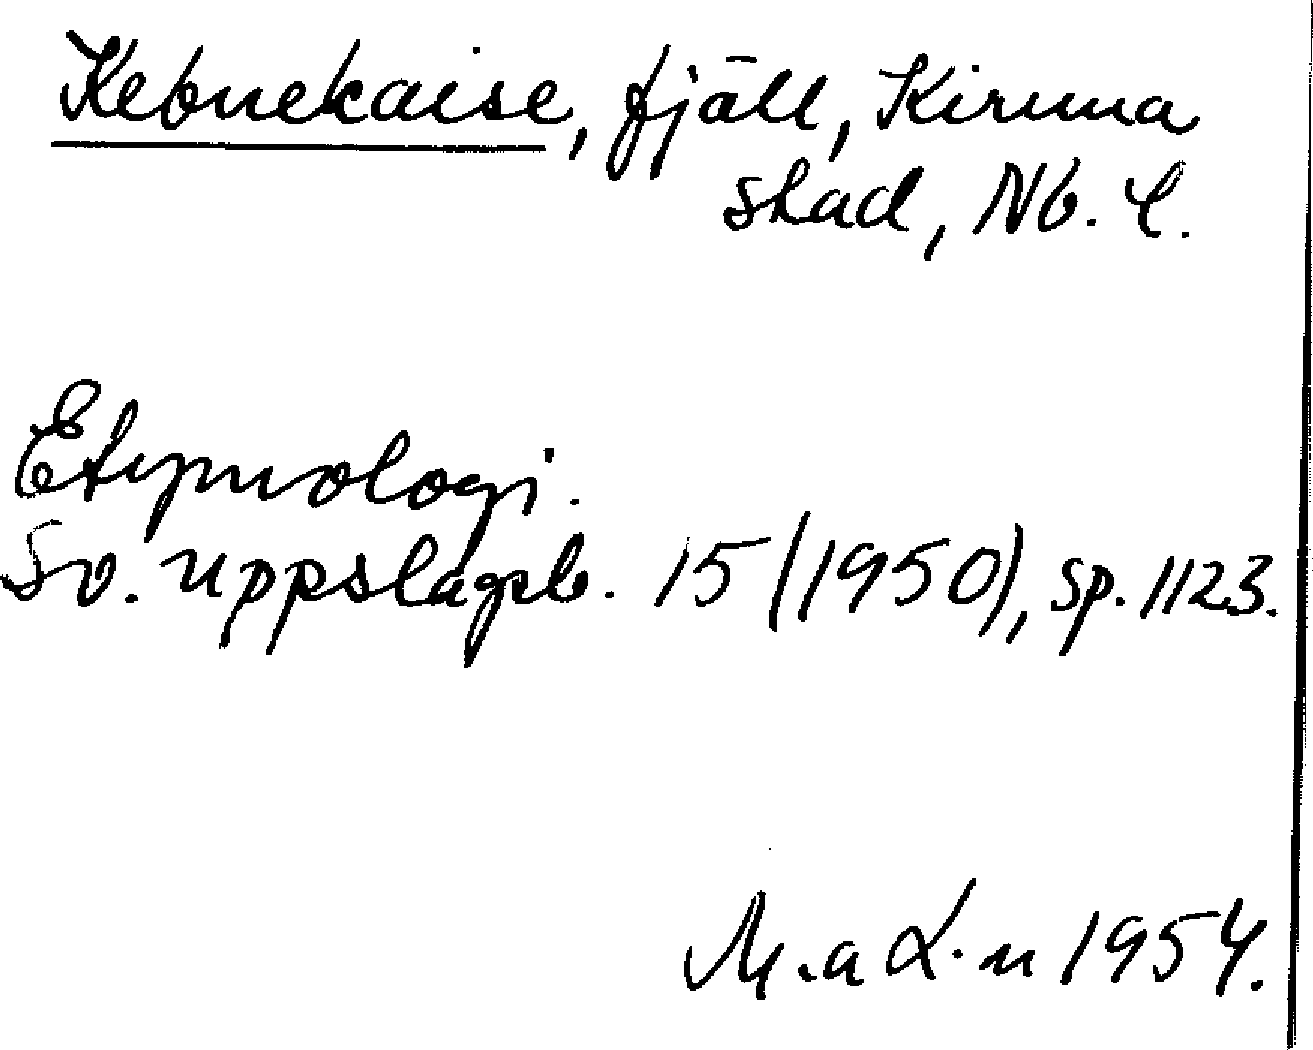 Kebnekaise, fjäll, Kiruna
stad, Nb. l.
Etymologi.
Sv. uppslagsb. 15 (1950), sp. 1123.
M.a L.n 1954.